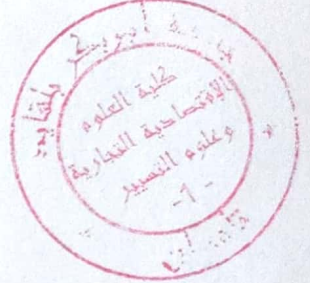 جامعة أبو بكر بلقايد
كلية العلوم
الإقتصادية التجارية
وعلوم التسيير
- 1 -
تلمسان